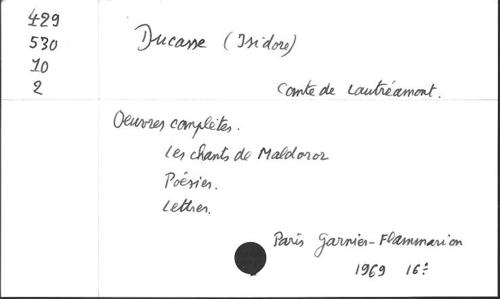 429
530
10
2
Ducasse (Isidore)
Comte de Lautréamont.
Oeuvres complètes.
Les chants de Maldoror
Poésies.
Lettres.
Paris Garnier-Flammarion
1969 16º